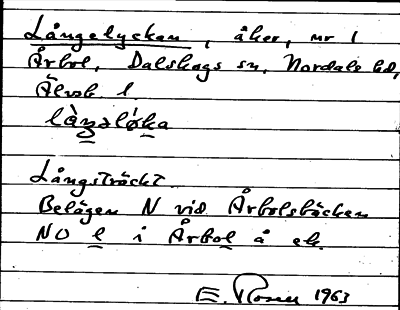 Långelyckan, åker, nr 1
Årbol, Dalskogs sn, Nordals hd,
Älvsb l.
Långsträckt.
Belägen N vid Årbolsbäcken
NO l i Årbol å ek.
E. Rosen 1963